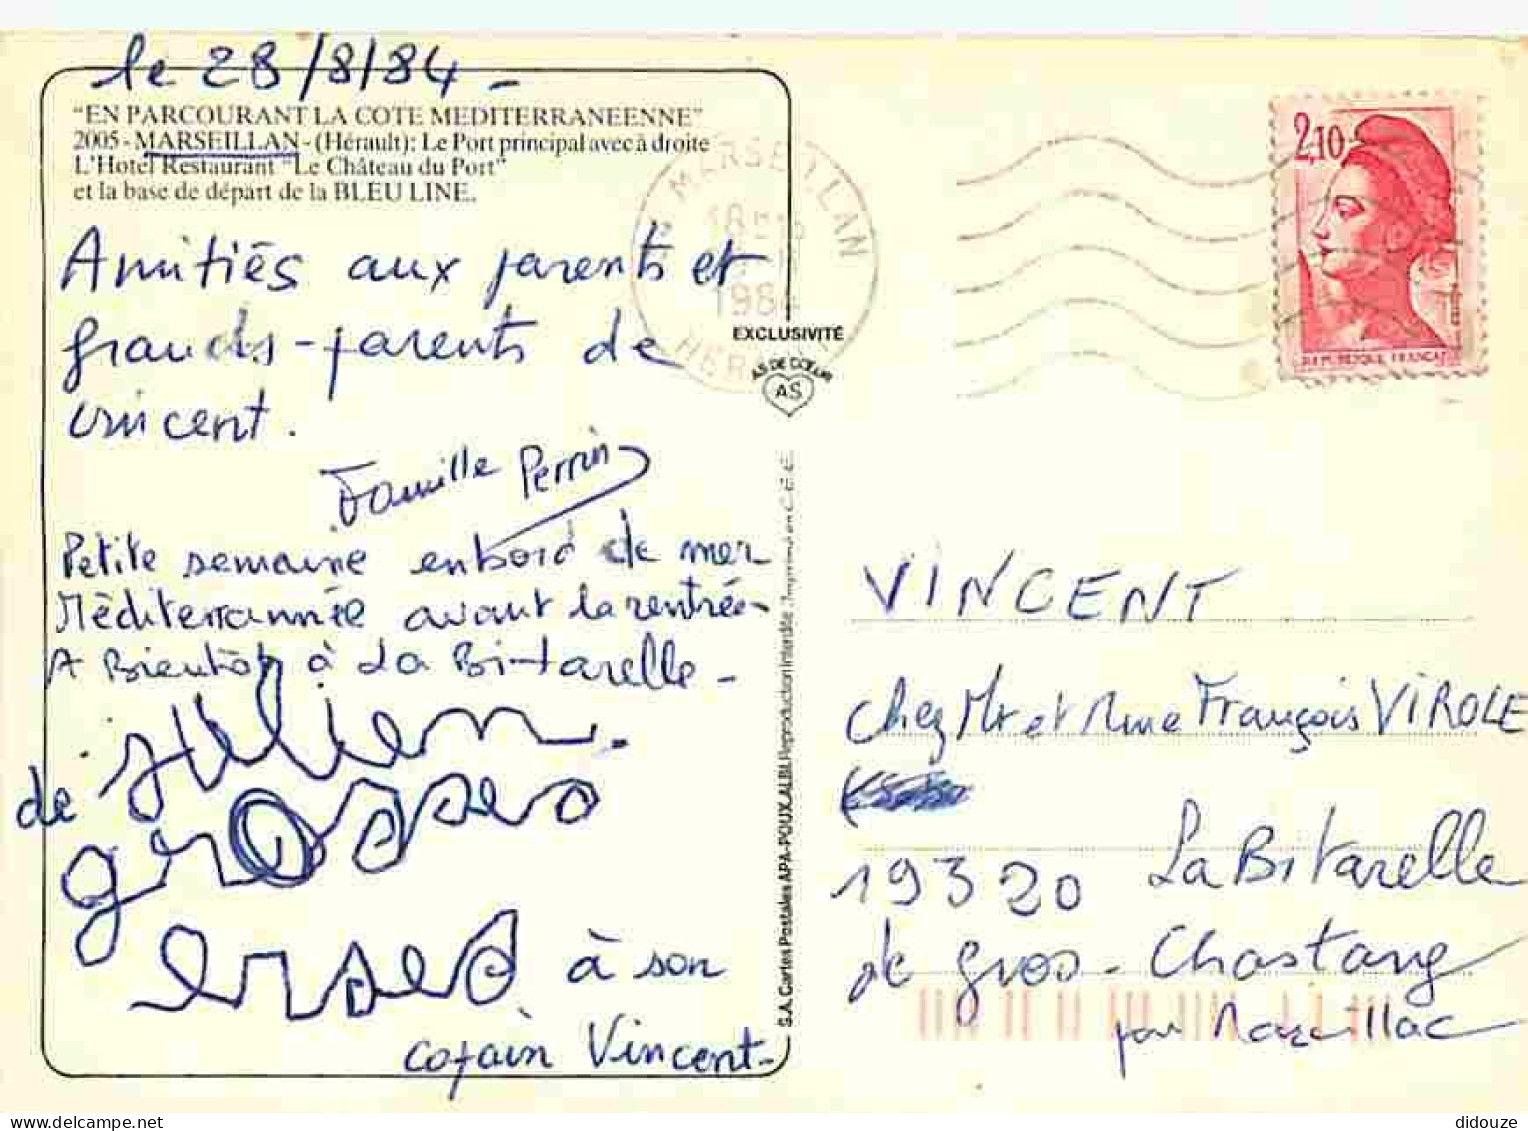 le 28/8/84 -
"EN PARCOURANT LA COTE MEDITERRANEENNE"
2005 - MARSEILLAN - (Hérault): Le Port principal avec à droite
L'Hotel Restaurant "Le Château du Port"
et la base de départ de la BLEU LINE.
Amitiés aux parents et
grands-parents de
Vincent.
Famille Perrin
Petite semaine en bord de mer
Méditerrannée avant la rentrée -
A Bientôt à La Bitarelle -
de Julien.
grosses
à son
copain Vincent -
MARSEILLAN
1984
HERAULT
EXCLUSIVITÉ
AS DE CŒUR
AS
S.A. Cartes Postales APA-POUX, ALBI. Reproduction interdite. Imprimé en C.E.E.
2,10
REPUBLIQUE FRANCAISE
VINCENT
chez Mr et Mme François VIROLE
19320 La Bitarelle
de gros - Chastang
par Marcillac
didouze